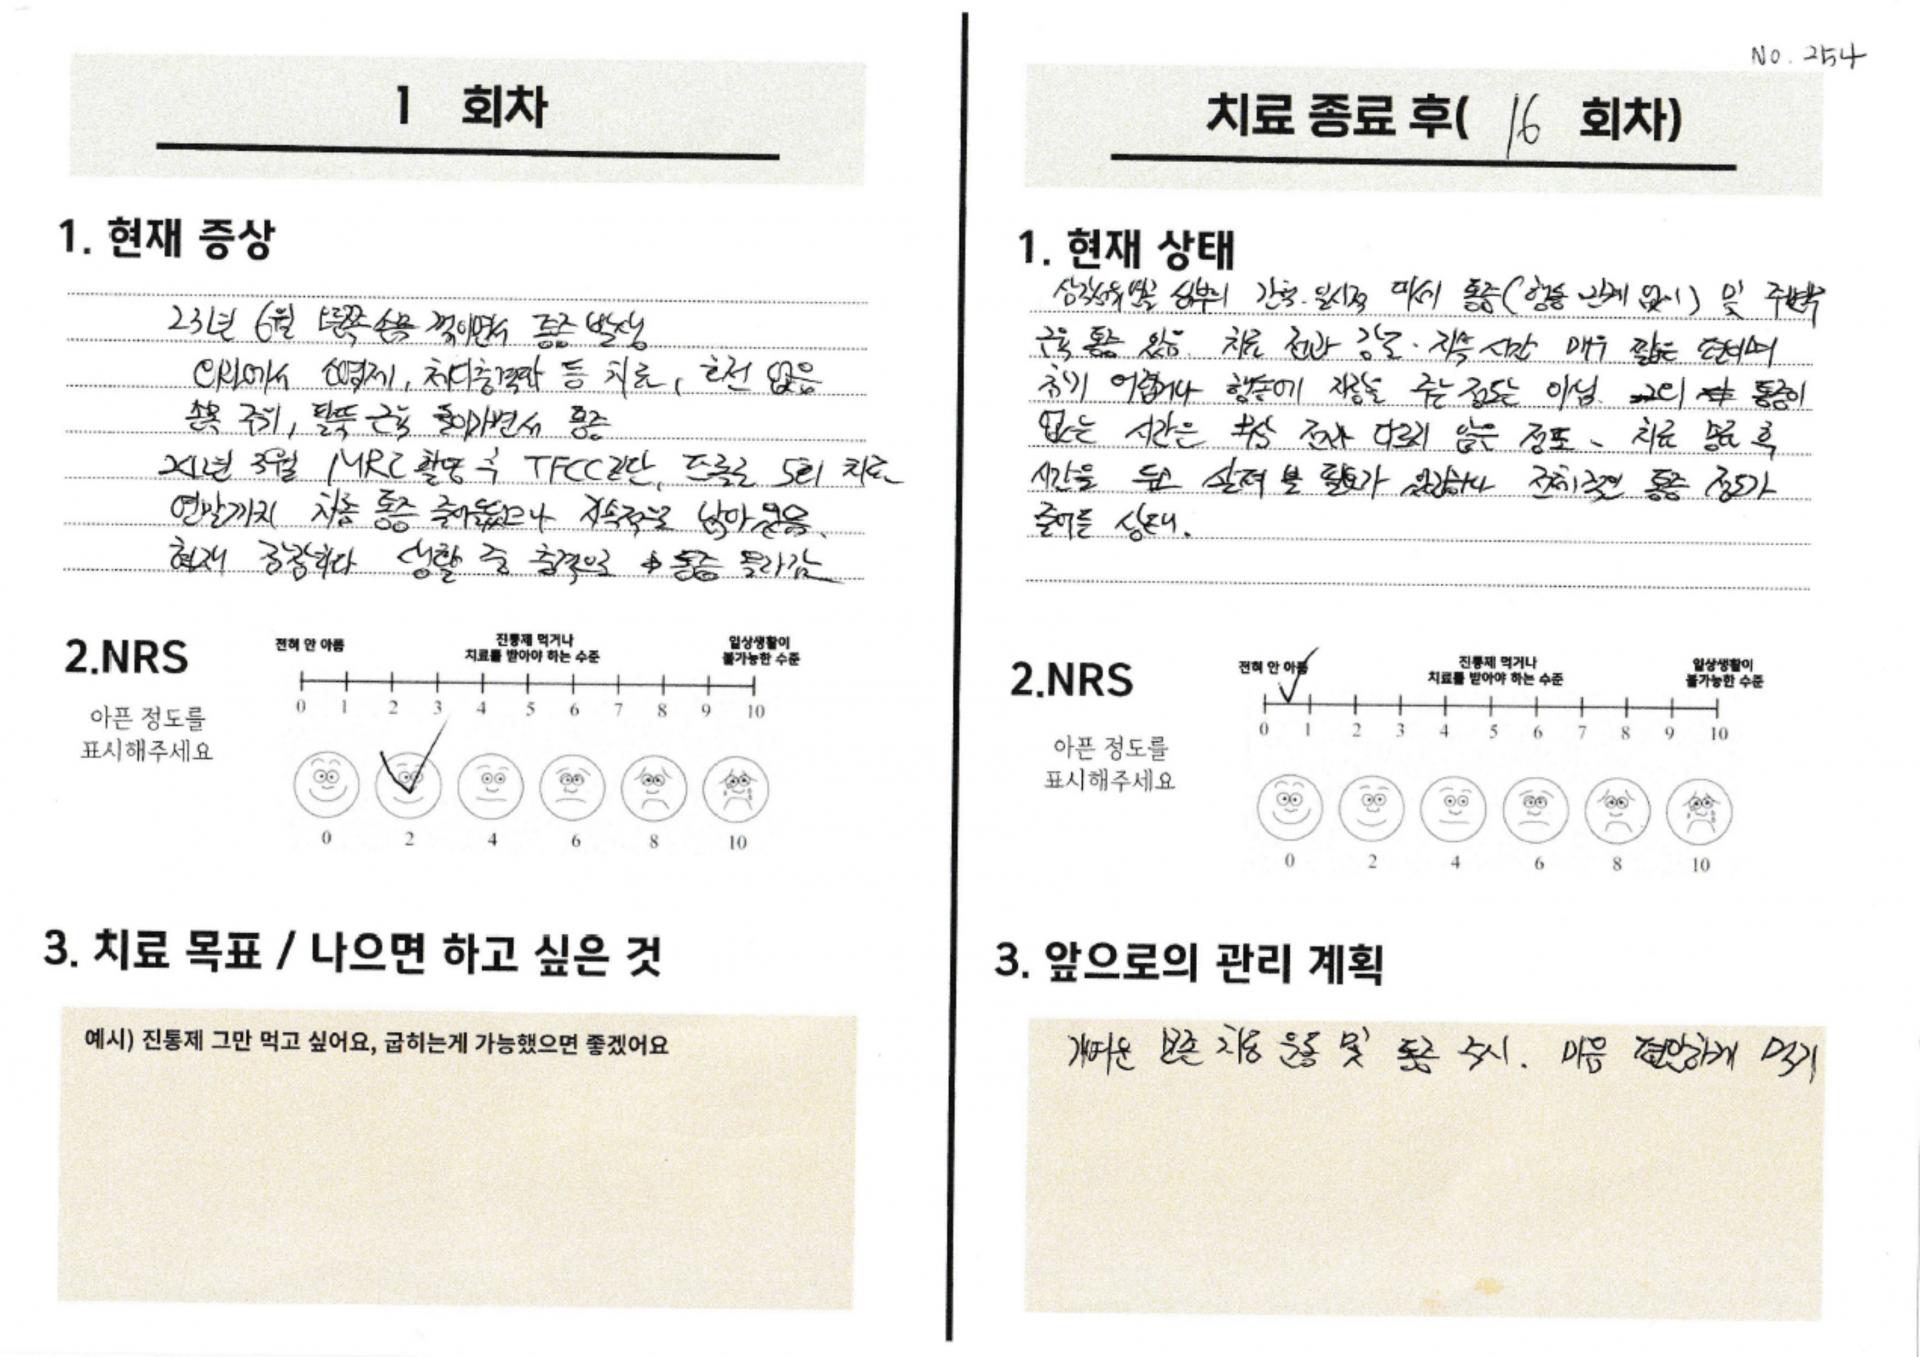 No. 254
1 회차
1. 현재 증상
23년 6월 오른쪽 손목 꺾이면서 통증 발생
에서 소염제, 체외충격파 등 치료, 호전 없음
손목 주위, 팔뚝 근육 통증
24년 3월 MRI 촬영 후 TFCC 진단, 프롤로 5회 치료
연말까지 차츰 통증 줄어들었으나 지속적으로 남아있음.
현재 잠잠하다 생활 중 충격으로 통증 올라감
2.NRS
아픈 정도를
표시해주세요
전혀 안 아픔
진통제 먹거나
치료를 받아야 하는 수준
일상생활이
불가능한 수준
0 1 2 3 4 5 6 7 8 9 10
0 2 4 6 8 10
3. 치료 목표 / 나으면 하고 싶은 것
예시) 진통제 그만 먹고 싶어요, 굽히는게 가능했으면 좋겠어요
치료 종료 후( 16 회차)
1. 현재 상태
삼각섬유연골 심부의 간헐.일시적 미세 통증(행동 관계 없이) 및 주변부
근육 통증 있음. 치료 전과 강도.지속시간 매우 짧은 편이며
참기 어렵거나 행동에 지장을 주는 정도는 아님. 그외 통증이
없는 시간은 부상 전과 다르지 않은 정도. 치료 종료 후
시간을 두고 살펴 볼 필요가 있겠으나 전체적인 통증 정도가
줄어든 상태.
2.NRS
아픈 정도를
표시해주세요
전혀 안 아픔
진통제 먹거나
치료를 받아야 하는 수준
일상생활이
불가능한 수준
0 1 2 3 4 5 6 7 8 9 10
0 2 4 6 8 10
3. 앞으로의 관리 계획
가벼운 보존 차원 운동 및 통증 주시. 마음 편안하게 먹기